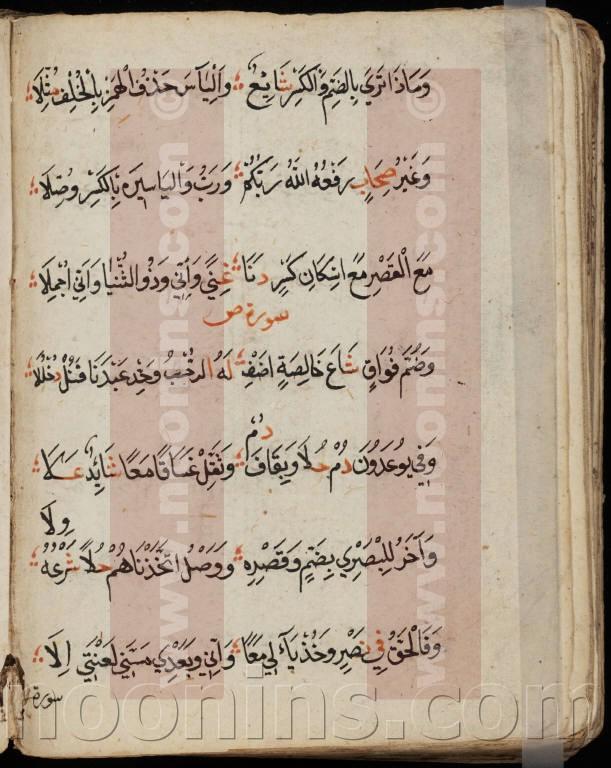 وَمَاذَا تَرَى بِالضَّمِّ وَالْكَسْرِ شَائِعٌ وَالْيَاسَ حَذْفُ الْهَمْزِ بِالْخُلْفِ مُثِّلَا
وَغَيْرُ صِحَابٍ رَفْعُهُ اللَّهُ رَبَّكُمْ وَرَبُّ وَإِلْيَاسِينَ بِالْكَسْرِ وُصِّلَا
مَعَ الْقَصْرِ مَعْ إِسْكَانِ كَسْرٍ دَنَا غِنًى وَإِنِّي وَذُو الثُّنْيَا وَأَنِّي أُجْمِلَا
سورة ص
وَضَمُّ فُوَاقٍ شَاعَ خَالِصَةٍ أَضِفْ لَهُ الرُّحْبُ وَحِّدْ عَبْدَنَا قَبْلُ دُخْلُلَا
دُمْ
وَفِي يُوعَدُونَ دُمْ حُلًا وَبِقَافَ وَثَقِّلْ غَسَاقًا مَعًا شَائِدٌ عُلَا
وِلَا
وَآخَرُ لِلْبَصْرِي بِضَمٍّ وَقَصْرِهِ وَوَصْلُ اتَّخَذْنَاهُمْ حَلَا شَرْعُهُ
وَفَالْحَقُّ فِي نَصْرٍ وَخُذْ يَاءَ لِي مَعًا وَإِنِّي وَبَعْدِي مَسَّنِي لَعْنَتِي إِلَى
سورة
www.noonins.com ©
www.noonins.com ©
noonins.com